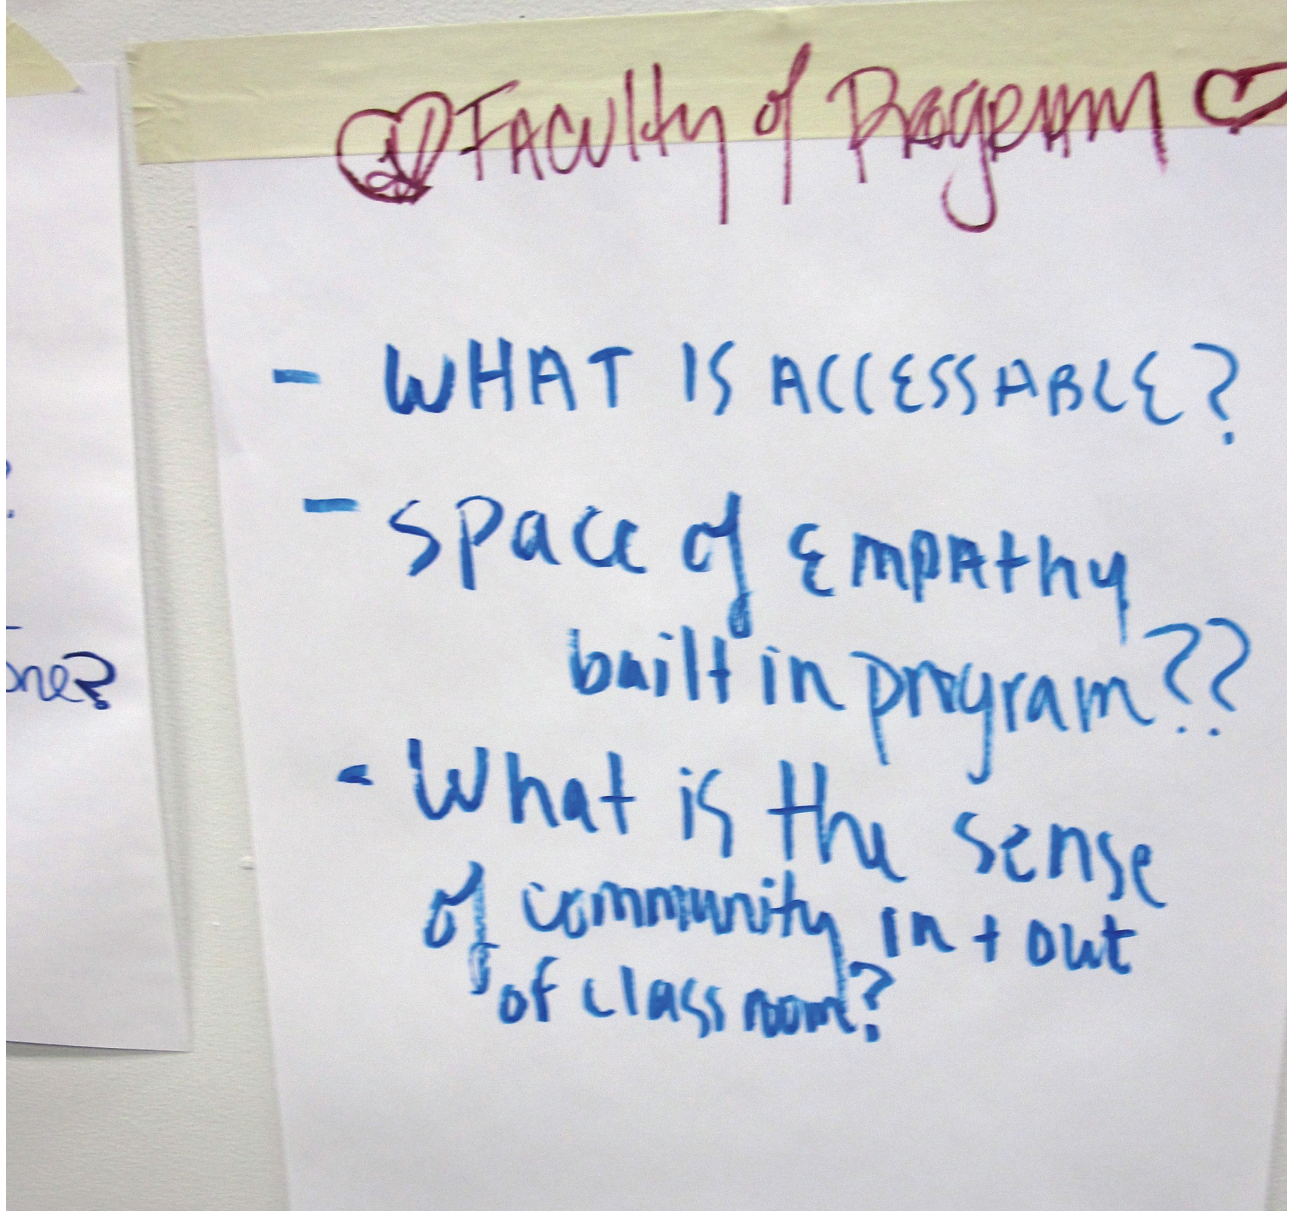 Faculty of Program
- WHAT IS ACCESSABLE?
- Space of Empathy
built in program??
- What is the sense
of community in + out
of class room?